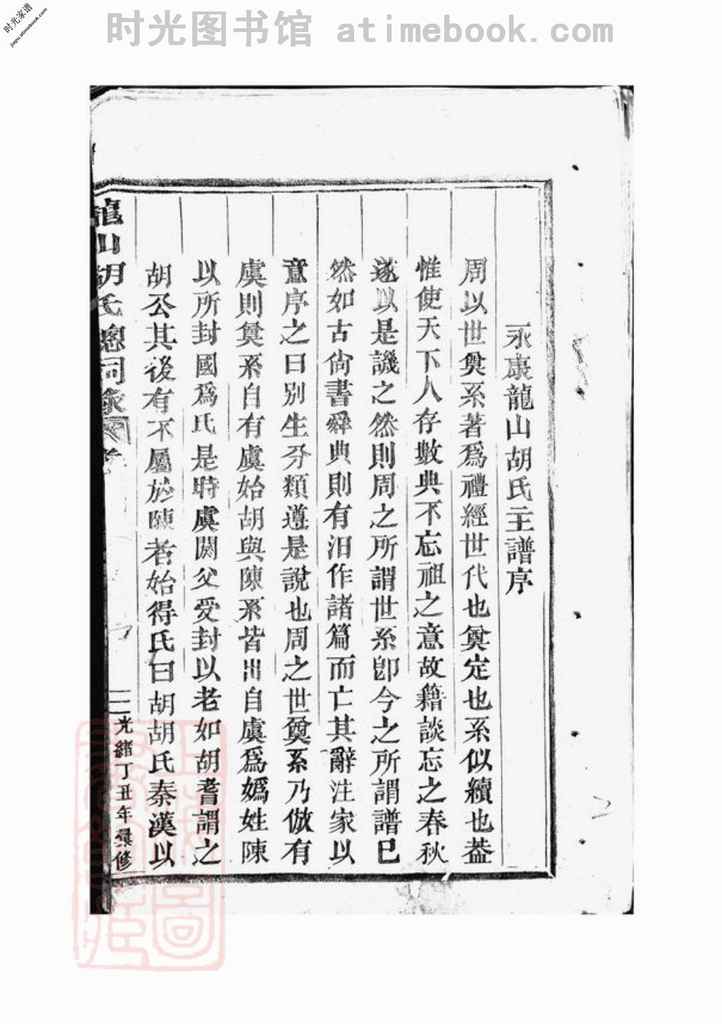 时光图书馆 atimebook.com
时光家谱
jiapu.atimebook.com
永康龍山胡氏主譜序
周以世奠系著爲禮經世代也奠定也系似續也葢
惟使天下人存數典不忘祖之意故籍談忘之春秋
遂以是譏之然則周之所謂世系卽今之所謂譜巳
然如古尙書舜典則有汨作諸篇而亡其辭注家以
意序之曰别生分類遵是說也周之世奠系乃倣有
虞則奠系自有虞始胡與陳系皆出自虞爲嬀姓陳
以所封國爲氏是時虞閼父受封以老如胡耆謂之
胡公其後有不屬於陳者始得氏曰胡胡氏秦漢以
龍山胡氏總祠
光緒丁丑年彙修